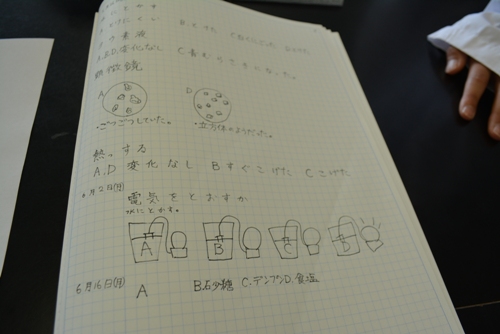 ヨウ素液
A,B,D,変化なし Cまむらさきになった。
顕微鏡
A D
・ごつごつしていた。 ・立方体のようだった。
熱する
A,D 変化なし Bすぐこげた Cこげた
6月2日(月) 電気をとおすか
水にとかす。
A B C D
6月16日(月) A B.砂糖 C.デンプン D.食塩